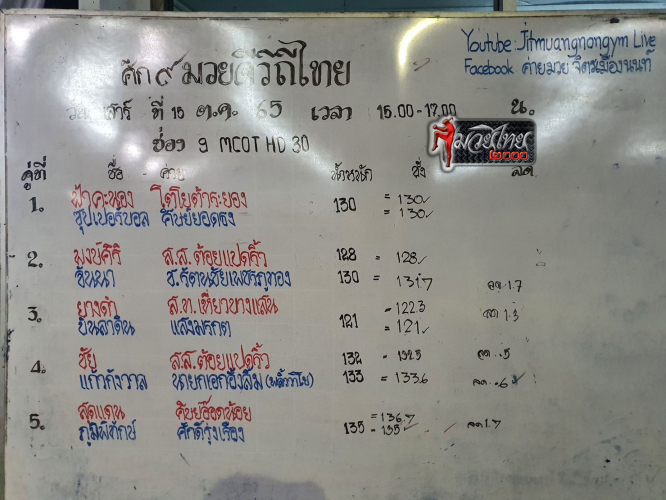 Youtube : Jitmuangnongym Live
Facebook ค่ายมวย จิตรเมืองนนท์
ศึก ๙ มวยดีวิถีไทย
วันเสาร์ ที่ 15 ต.ค. 65 เวลา 15.00-17.00 น.
ช่อง 9 MCOT HD 30
มวยไทย
๒๐๐๐
คู่ที่ ชื่อ ค่าย น้ำหนัก ชั่ง ลด
1. ฟ้าคะนอง โตโยต้าระยอง 130 = 130✓
ซุปเปอร์บอล ศิษย์ยอดธง = 130✓
2. พงษ์ศิริ ส.ส.ต้อยแปดริ้ว 128 = 128✓
ขันนา ช.รัตนชัยเพชรภูทอง 130 = 131.7 ลด 1.7
3. ยางดำ ส.ท.เที่ยวบางแสน = 122.3 ลด 1.3
ยันลาดิน แสงมรกต 121 = 121✓
4. ชัย ส.ส.ต้อยแปดริ้ว 132 = 132.5 ลด .5
แก้วกังวาล นายกเอกอึ่งลืม 133 = 133.6 ลด .6✓
5. สุดแดน ศิษย์อ๊อดน้อย = 136.7
ภูมิพิทักษ์ ศักดิ์รุ่งเรือง 135 = 135✓ ลด 1.7